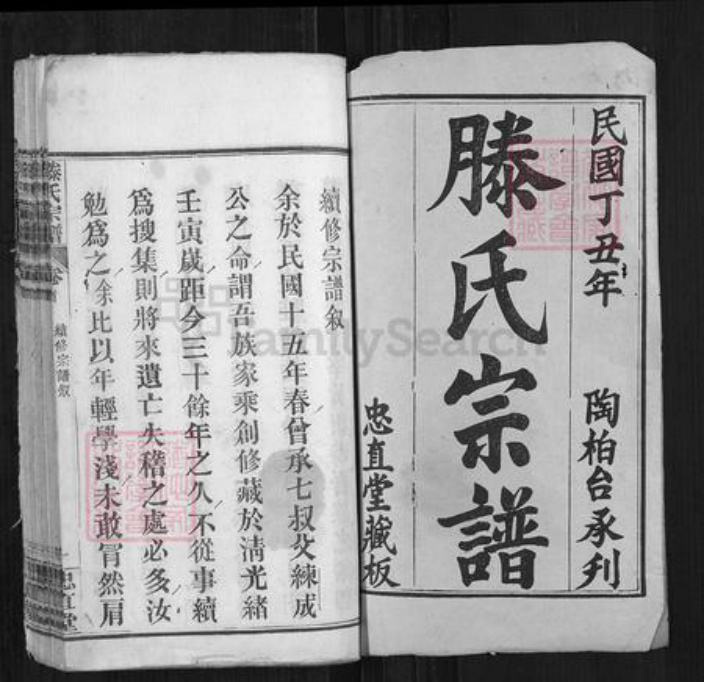 民國丁丑年
陶柏台承刋
滕氏宗譜
忠直堂藏板
續修宗譜叙
余於民國十五年春曾承七叔父練成
公之命謂吾族家乘創修藏於清光緒
壬寅歲距今三十餘年之久不從事續
爲搜集則將來遺亡失稽之處必多汝
勉爲之余比以年輕學淺未敢冐然肩
滕氏宗譜
卷
續修宗譜叙
一
忠直堂
FamilySearch